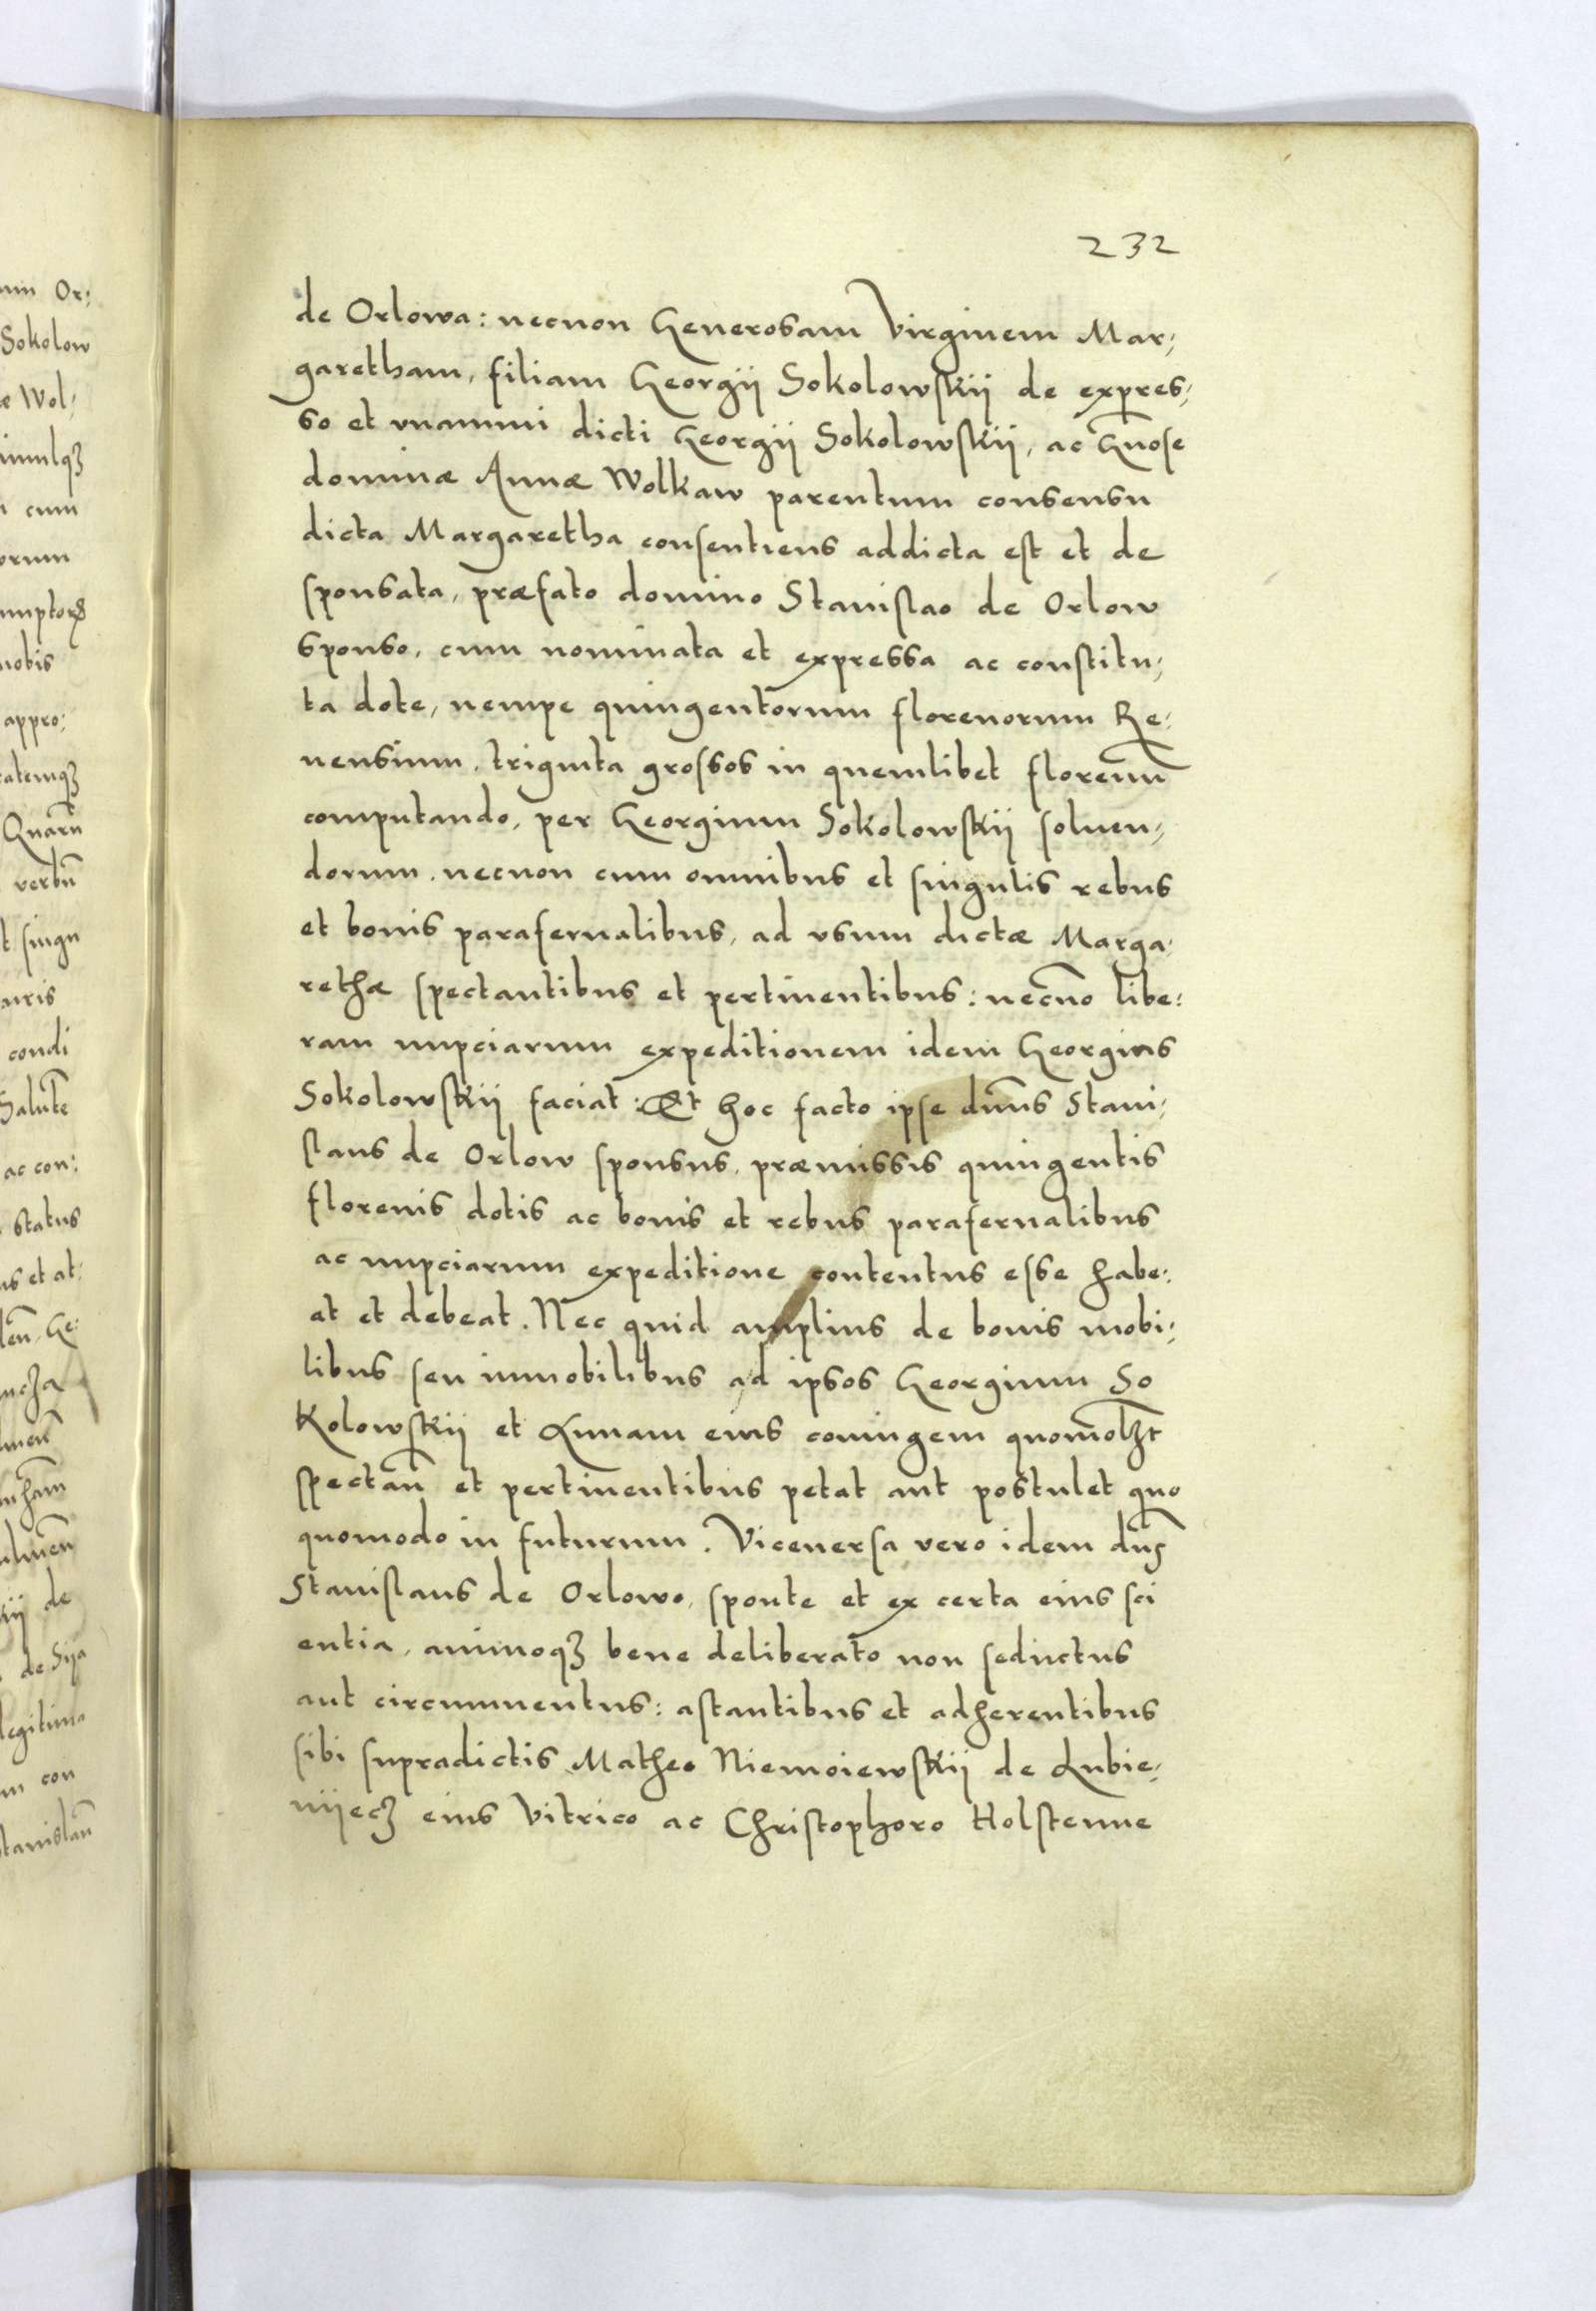 232
de Orlowa: necnon Generosam Virginem Mar,
garetham, filiam Georgij Sokolowskij de expres,
so et vnanimi dicti Georgij Sokolowskij, ac Gnose
dominæ Annæ Wolkaw parentum consensu
dicta Margaretha consentiens addicta est et de
sponsata, præfato domino Stanislao de Orlow
sponso, cum nominata et expressa ac constitu,
ta dote, nempe quingentorum florenorum Re,
nensium, triginta grossos in quemlibet florenũ
computando, per Georgium Sokolowskij soluen,
dorum, necnon cum omnibus et singulis rebus
et bonis parafernalibus, ad vsum dictæ Marga,
rethæ spectantibus et pertinentibus: necno libe,
ram nupciarum expeditionem idem Georgius
Sokolowskij faciat: Et hoc facto ipse dñus Stani,
slaus de Orlow sponsus, præmissis quingentis
florenis dotis ac bonis et rebus parafernalibus
ac nupciarum expeditione contentus esse habe,
at et debeat. Nec quid amplius de bonis mobi,
libus seu immobilibus ad ipsos Georgium So
kolowskij et Annam eius coniugem quomolȝt
spectañ et pertinentibus petat aut postulet quo
quomodo in futurum. Viceuersa vero idem dñs
Stanislaus de Orlowo, sponte et ex certa eius sci
entia, animoqȝ bene deliberato non seductus
aut circumuentus: astantibus et adherentibus
sibi supradictis Matheo Niemoiewskij de Lubie,
nijecȝ eius Vitrico ac Christophoro Holstenne
um Or:
Sokolow
æ Wol,
cum
orum
nobis
appro:
atemqȝ
Quarũ
verbũ
t singu
uris
condi
Salutẽ
ac con:
status
us et at:
de
de Sija
legitima
m con
tanislaũ